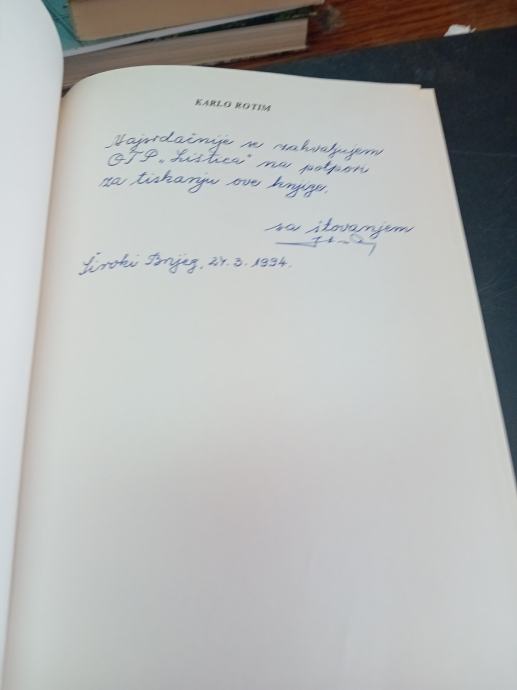 KARLO ROTIM
Najsrdačnije se zahvaljujem
GTP „Lištica" na potpori
za tiskanju ove knjige.
sa štovanjem
Široki Brijeg, 24. 3. 1994.